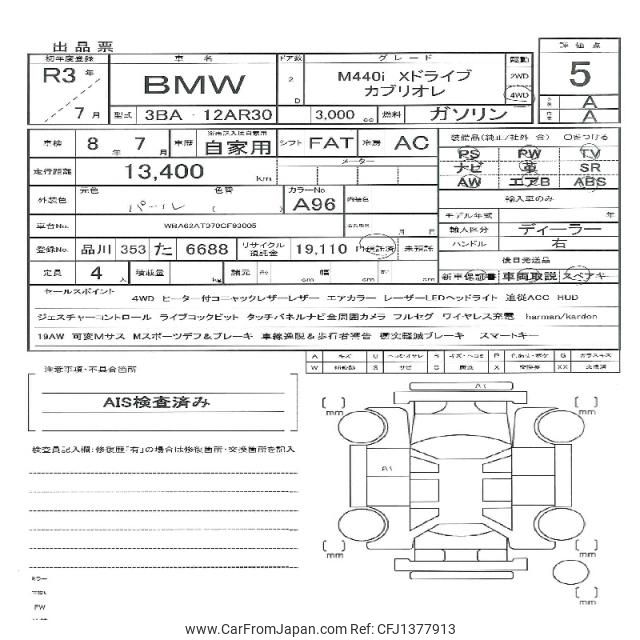 出品票
初年度登録 車名 ドア数 グレード 駆動 評価点
R3年 BMW 2 D M440i Xドライブ カブリオレ 2WD 4WD 5
7月 型式 3BA - 12AR30 3,000 cc 燃料 ガソリン A A
車検 8年 7月 車歴 自家用 シフト FAT 冷房 AC
装備品(純正/社外 含) ○をつける
走行距離 13,400 km メーター
PS PW TV
ナビ 革 SR
AW エアB ABS
外装色 元色 パール 色替 カラーNo A96 内装色
輸入車のみ
モデル年式 年
車台No. WBA62AT070CF93005 月 日
輸入区分 ディーラー
登録No. 品川 353 た 6688 リサイクル預託金 19,110 円 預託済 未預託
ハンドル 右
後日発送品
定員 4人 積載量 kg 諸元 長 cm 幅 cm 高 cm
新車保証書 車両取説 スペアキー
セールスポイント
4WD ヒーター付コニャックレザーレザー エアカラー レーザーLEDヘッドライト 追従ACC HUD
ジェスチャーコントロール ライブコックピット タッチパネルナビ全周囲カメラ フルセグ ワイヤレス充電 harman/kardon
19AW 可変Mサス Mスポーツデフ&ブレーキ 車線逸脱&歩行者警告 衝突軽減ブレーキ スマートキー
注意事項・不具合箇所
AIS検査済み
検査員記入欄:修復歴「有」の場合は修復箇所・交換箇所を記入
A キズ U P G ガラスキズ
W S サビ C 腐食 X XX 交換済
A1
A1
[ ] mm
[ ] mm
[ ] mm
[ ] mm
[ ] mm
ミラー
PW
www.CarFromJapan.com Ref: CFJ1377913